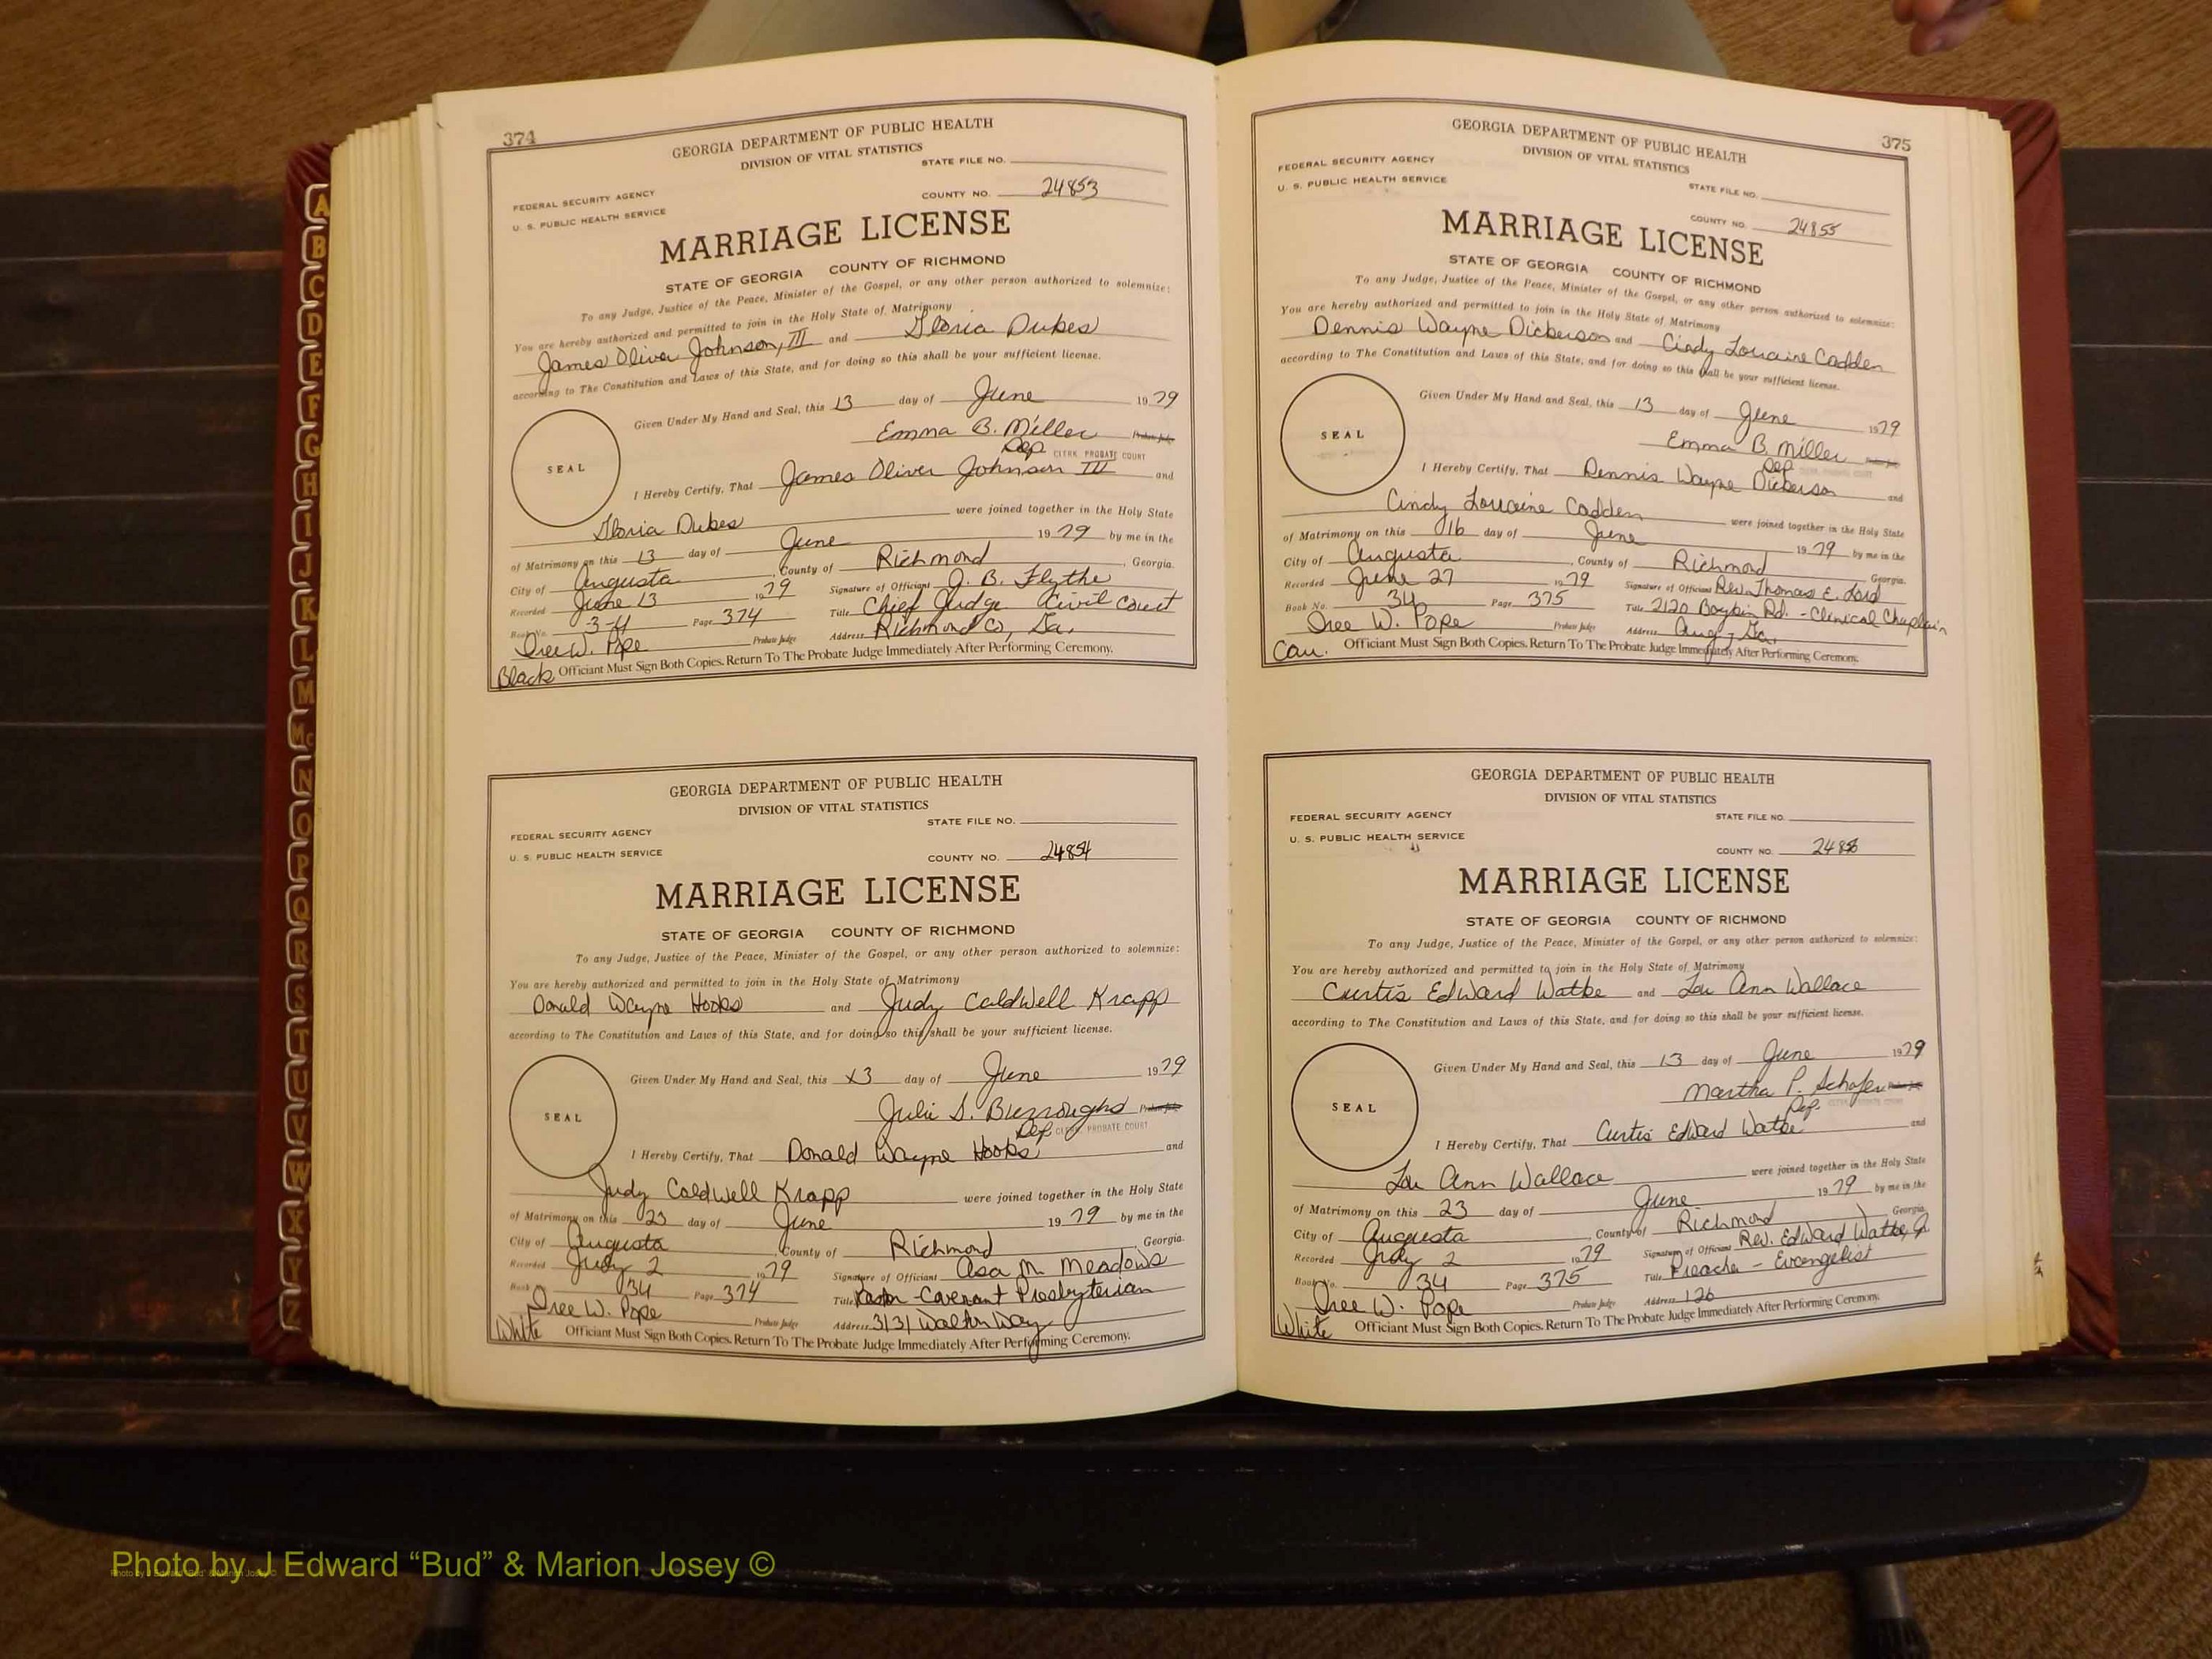 374
GEORGIA DEPARTMENT OF PUBLIC HEALTH
DIVISION OF VITAL STATISTICS
STATE FILE NO.
FEDERAL SECURITY AGENCY
U. S. PUBLIC HEALTH SERVICE
COUNTY NO. 24853
MARRIAGE LICENSE
STATE OF GEORGIA COUNTY OF RICHMOND
To any Judge, Justice of the Peace, Minister of the Gospel, or any other person authorized to solemnize:
You are hereby authorized and permitted to join in the Holy State of Matrimony
James Oliver Johnson, III and Gloria Dukes
according to The Constitution and Laws of this State, and for doing so this shall be your sufficient license.
Given Under My Hand and Seal, this 13 day of June 1979
Emma B. Miller Probate Judge
Dep. CLERK, PROBATE COURT
SEAL
I Hereby Certify, That James Oliver Johnson III and
Gloria Dukes were joined together in the Holy State
of Matrimony on this 13 day of June 1979 by me in the
City of Augusta, County of Richmond, Georgia.
Recorded June 13 1979 Signature of Officiant J. B. Flythe
Book No. 34 Page 374 Title Chief Judge Civil Court
Iree W. Pope Probate Judge Address Richmond Co, Ga.
Black Officiant Must Sign Both Copies. Return To The Probate Judge Immediately After Performing Ceremony.
GEORGIA DEPARTMENT OF PUBLIC HEALTH
DIVISION OF VITAL STATISTICS
STATE FILE NO.
FEDERAL SECURITY AGENCY
U. S. PUBLIC HEALTH SERVICE
COUNTY NO. 24854
MARRIAGE LICENSE
STATE OF GEORGIA COUNTY OF RICHMOND
To any Judge, Justice of the Peace, Minister of the Gospel, or any other person authorized to solemnize:
You are hereby authorized and permitted to join in the Holy State of Matrimony
Donald Wayne Hooks and Judy Caldwell Krapp
according to The Constitution and Laws of this State, and for doing so this shall be your sufficient license.
Given Under My Hand and Seal, this 13 day of June 1979
Julie S. Burroughs Probate Judge
Dep. CLERK, PROBATE COURT
SEAL
I Hereby Certify, That Donald Wayne Hooks and
Judy Caldwell Krapp were joined together in the Holy State
of Matrimony on this 23 day of June 1979 by me in the
City of Augusta, County of Richmond, Georgia.
Recorded July 2 1979 Signature of Officiant Asa M. Meadows
Book 34 Page 374 Title Pastor Covenant Presbyterian
Iree W. Pope Probate Judge Address 3131 Walton Way
White Officiant Must Sign Both Copies. Return To The Probate Judge Immediately After Performing Ceremony.
375
GEORGIA DEPARTMENT OF PUBLIC HEALTH
DIVISION OF VITAL STATISTICS
FEDERAL SECURITY AGENCY
U. S. PUBLIC HEALTH SERVICE
STATE FILE NO.
COUNTY NO. 24855
MARRIAGE LICENSE
STATE OF GEORGIA COUNTY OF RICHMOND
To any Judge, Justice of the Peace, Minister of the Gospel, or any other person authorized to solemnize:
You are hereby authorized and permitted to join in the Holy State of Matrimony
Dennis Wayne Dickerson and Cindy Lorraine Cadden
according to The Constitution and Laws of this State, and for doing so this shall be your sufficient license.
Given Under My Hand and Seal, this 13 day of June 1979
Emma B. Miller
Dep. CLERK, PROBATE COURT
SEAL
I Hereby Certify, That Dennis Wayne Dickerson and
Cindy Lorraine Cadden were joined together in the Holy State
of Matrimony on this 16 day of June 1979 by me in the
City of Augusta, County of Richmond Georgia.
Recorded June 27 1979 Signature of Officiant Rev. Thomas E. Lord
Book No. 34 Page 375 Title 2120 Boykin Rd. - Clinical Chaplain
Iree W. Pope Probate Judge Address Aug, Ga.
Cau. Officiant Must Sign Both Copies. Return To The Probate Judge Immediately After Performing Ceremony.
GEORGIA DEPARTMENT OF PUBLIC HEALTH
DIVISION OF VITAL STATISTICS
FEDERAL SECURITY AGENCY
STATE FILE NO.
U. S. PUBLIC HEALTH SERVICE
COUNTY NO. 24856
MARRIAGE LICENSE
STATE OF GEORGIA COUNTY OF RICHMOND
To any Judge, Justice of the Peace, Minister of the Gospel, or any other person authorized to solemnize:
You are hereby authorized and permitted to join in the Holy State of Matrimony
Curtis Edward Watke and Lou Ann Wallace
according to The Constitution and Laws of this State, and for doing so this shall be your sufficient license.
Given Under My Hand and Seal, this 13 day of June 1979
Martha P. Schafer
Dep. CLERK, PROBATE COURT
SEAL
I Hereby Certify, That Curtis Edward Watke and
Lou Ann Wallace were joined together in the Holy State
of Matrimony on this 23 day of June 1979 by me in the
City of Augusta, County of Richmond Georgia.
Recorded July 2 1979 Signature of Officiant Rev. Edward Watke, Jr.
Book No. 34 Page 375 Title Preacher - Evangelist
Iree W. Pope Probate Judge Address 126
White Officiant Must Sign Both Copies. Return To The Probate Judge Immediately After Performing Ceremony.
A
B
C
D
E
F
G
H
I
J
K
L
M
Mc
N
O
P
Q
R
S
T
U
V
W
X
Y
Z
Photo by J Edward “Bud” & Marion Josey ©